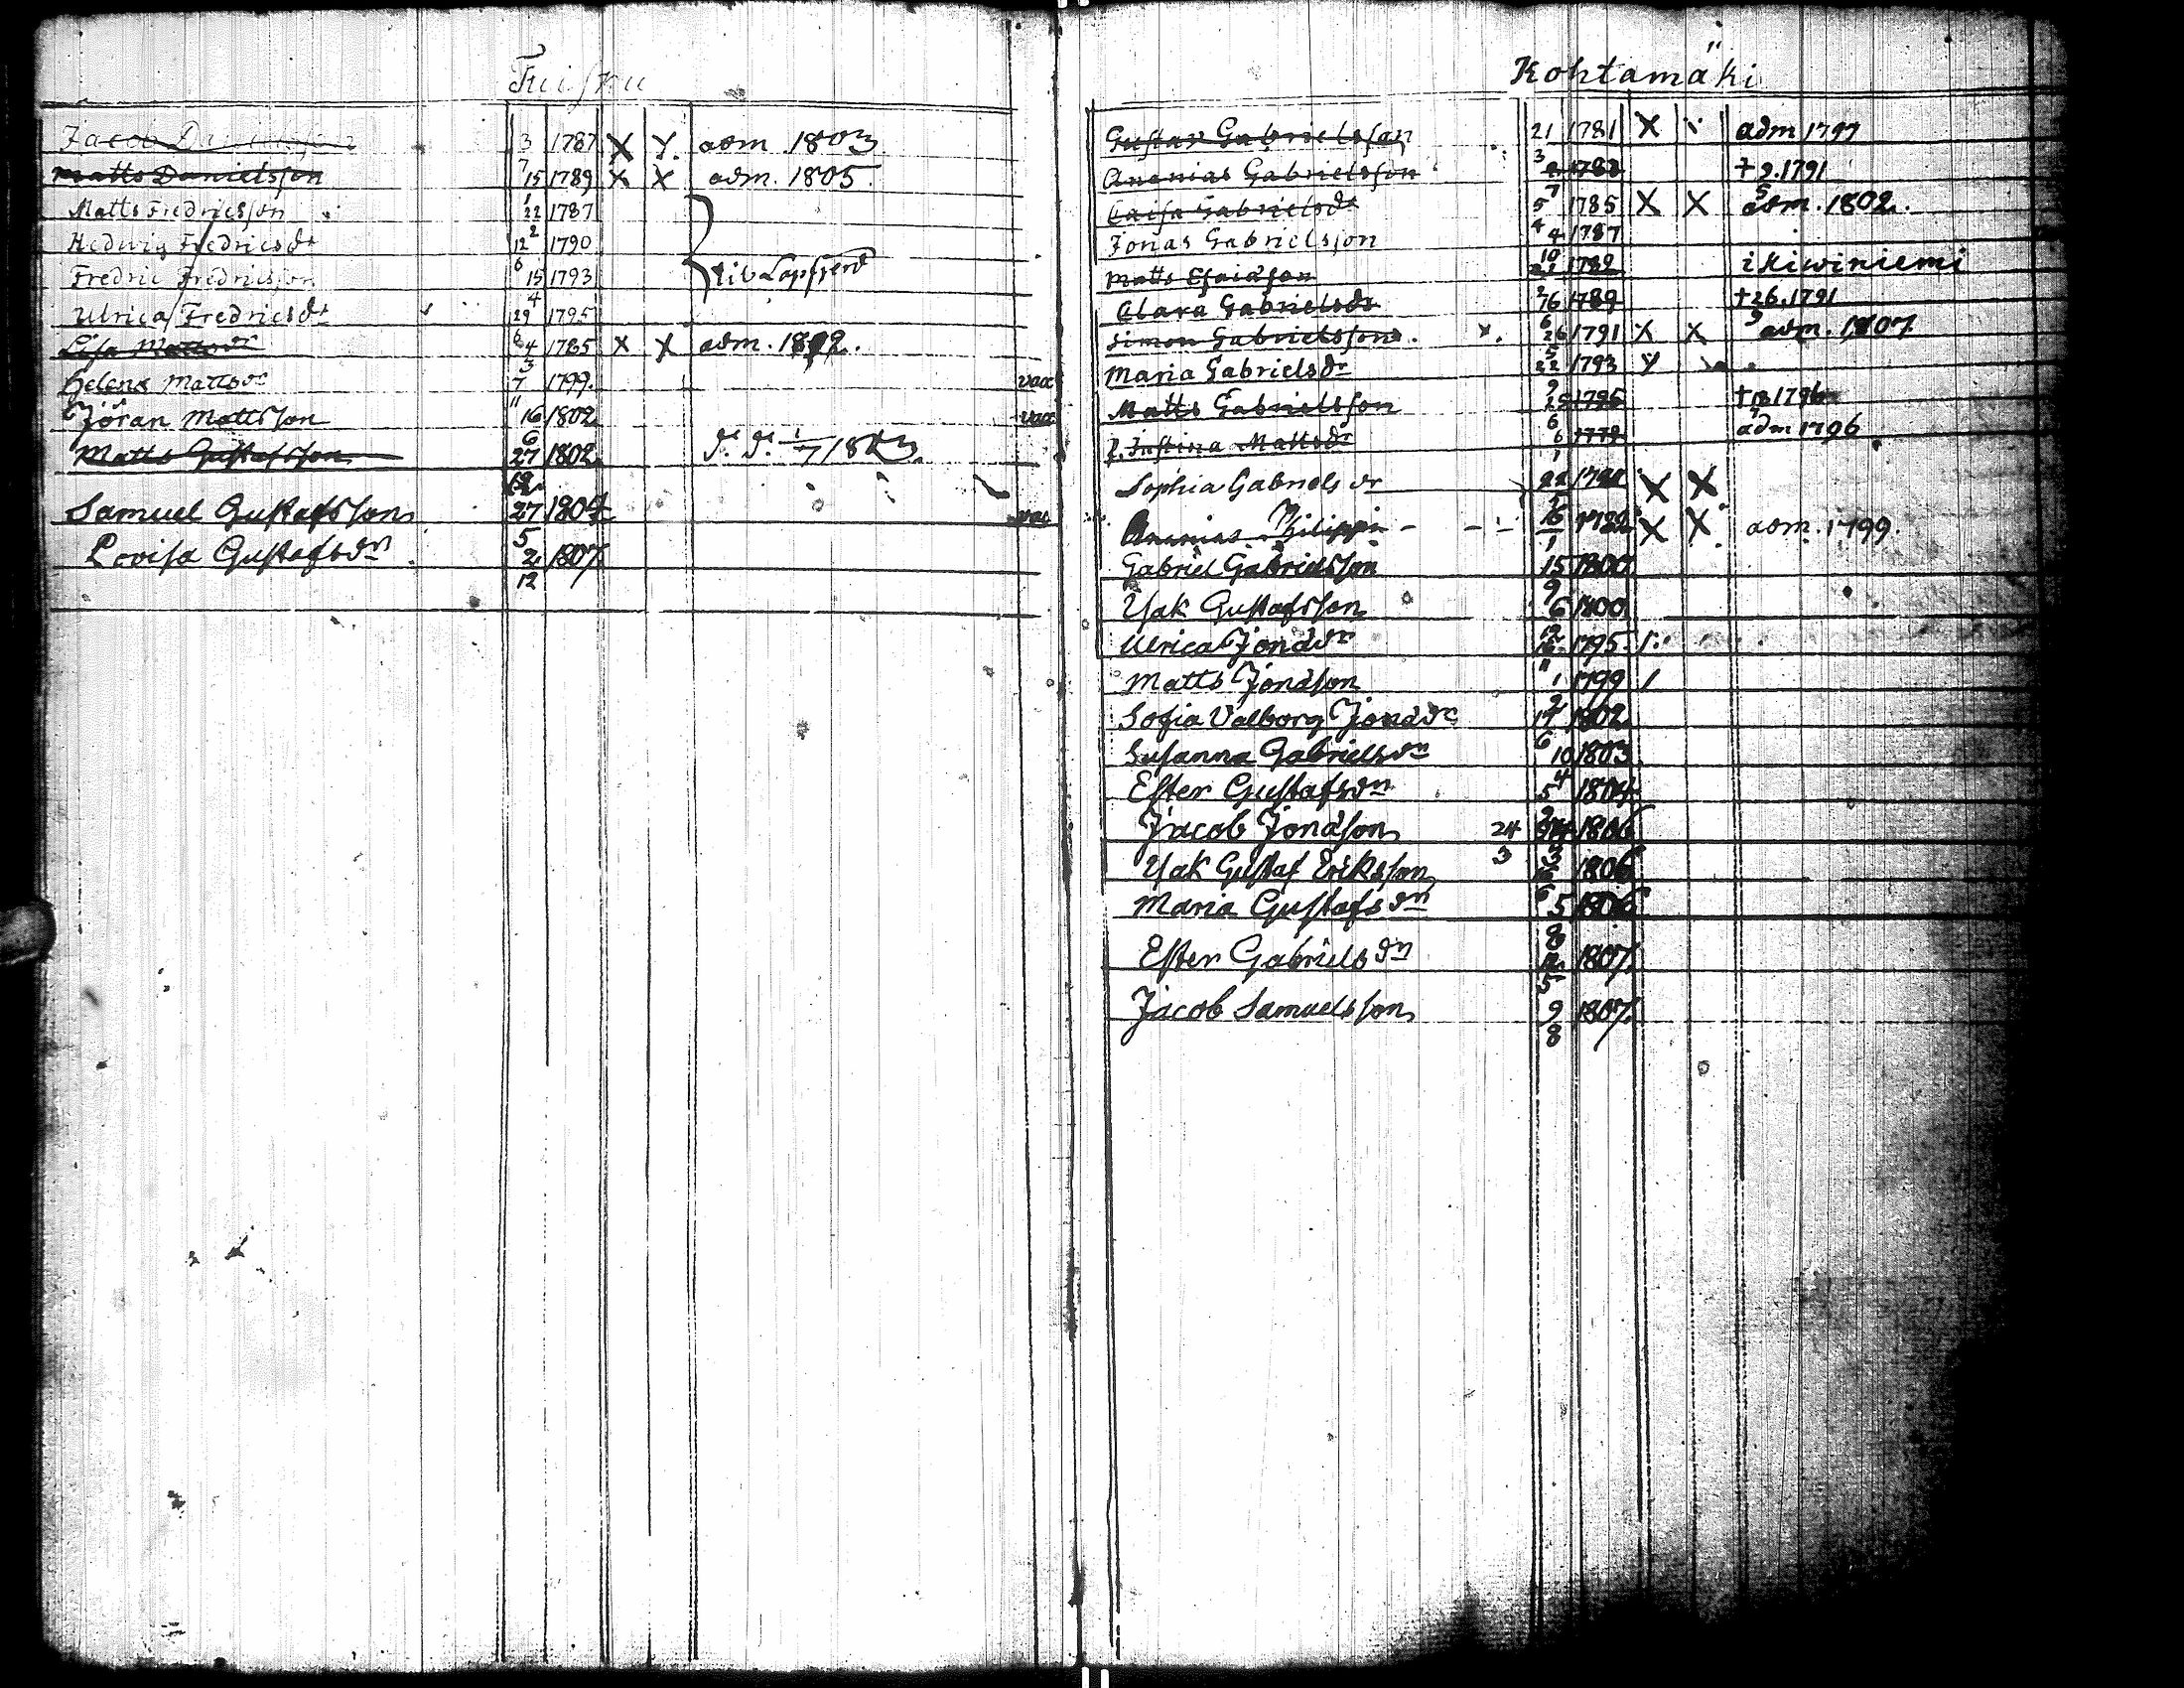 Kuisku
Jacob Danielsson 3 1787 X X adm. 1803
Matts Danielsson 7 15 1789 X X adm. 1805.
Matts Fredricsson 1 22 1787
Hedwig Fredricsdr 2 12 1790
Fredric Fredricsson 6 15 1793 til Lapfjerd
Ulrica Fredricsdr 4 29 1795
Lisa Mattsdr 6 4 1785 X X adm. 1802.
Helena Mattsdr 3 7 1799. vac
Jöran Mattsson 11 16 1802. vac
Matts Gustafsson 6 27 1802. 1803.
Samuel Gustafsson 12 27 1804 vac
Lovisa Gustafsdr 5 2 1807.
12
Kohtamäki
Gustav Gabrielsson 21 1781 X adm 1797
Ananias Gabrielsson 3 1783 + 9.1791
Caisa Gabrielsdr 7 5 1785 X X adm. 1802.
Jonas Gabrielsson 4 4 1787
Matts Esaiasson 10 21 1789 i Kiwiniemi
Clara Gabrielsdr 2 16 1789 +26.1791
Simon Gabrielsson. 6 26 1791 X X adm. 1807.
Maria Gabrielsdr 5 22 1793
Matts Gabrielsson 9 1795 +18 1796
P. Justina Mattsdr 6 6 1779 adm 1796
Sophia Gabriels dr 1 22 X X
Ananias Philippi 16 X X adm. 1799.
1
Gabriel Gabrielsson 15 1800
Isak Gustafsson 9 6 1800
Ulrica Jonadr 12 16 1795
Matts Jonasson 11 1 1799
Sofia Valborg Jonadr 9 17 1802.
Susanna Gabrielsdr 6 10 1803
Ester Gustafsdr 4 5 1804
Jacob Jonasson 24 1806
Isak Gustaf Eriksson 3 1806
Maria Gustafsdr 6 5 1806
8
Ester Gabrielsdr 12 1807.
5
Jacob Samuelsson 9 1807.
8